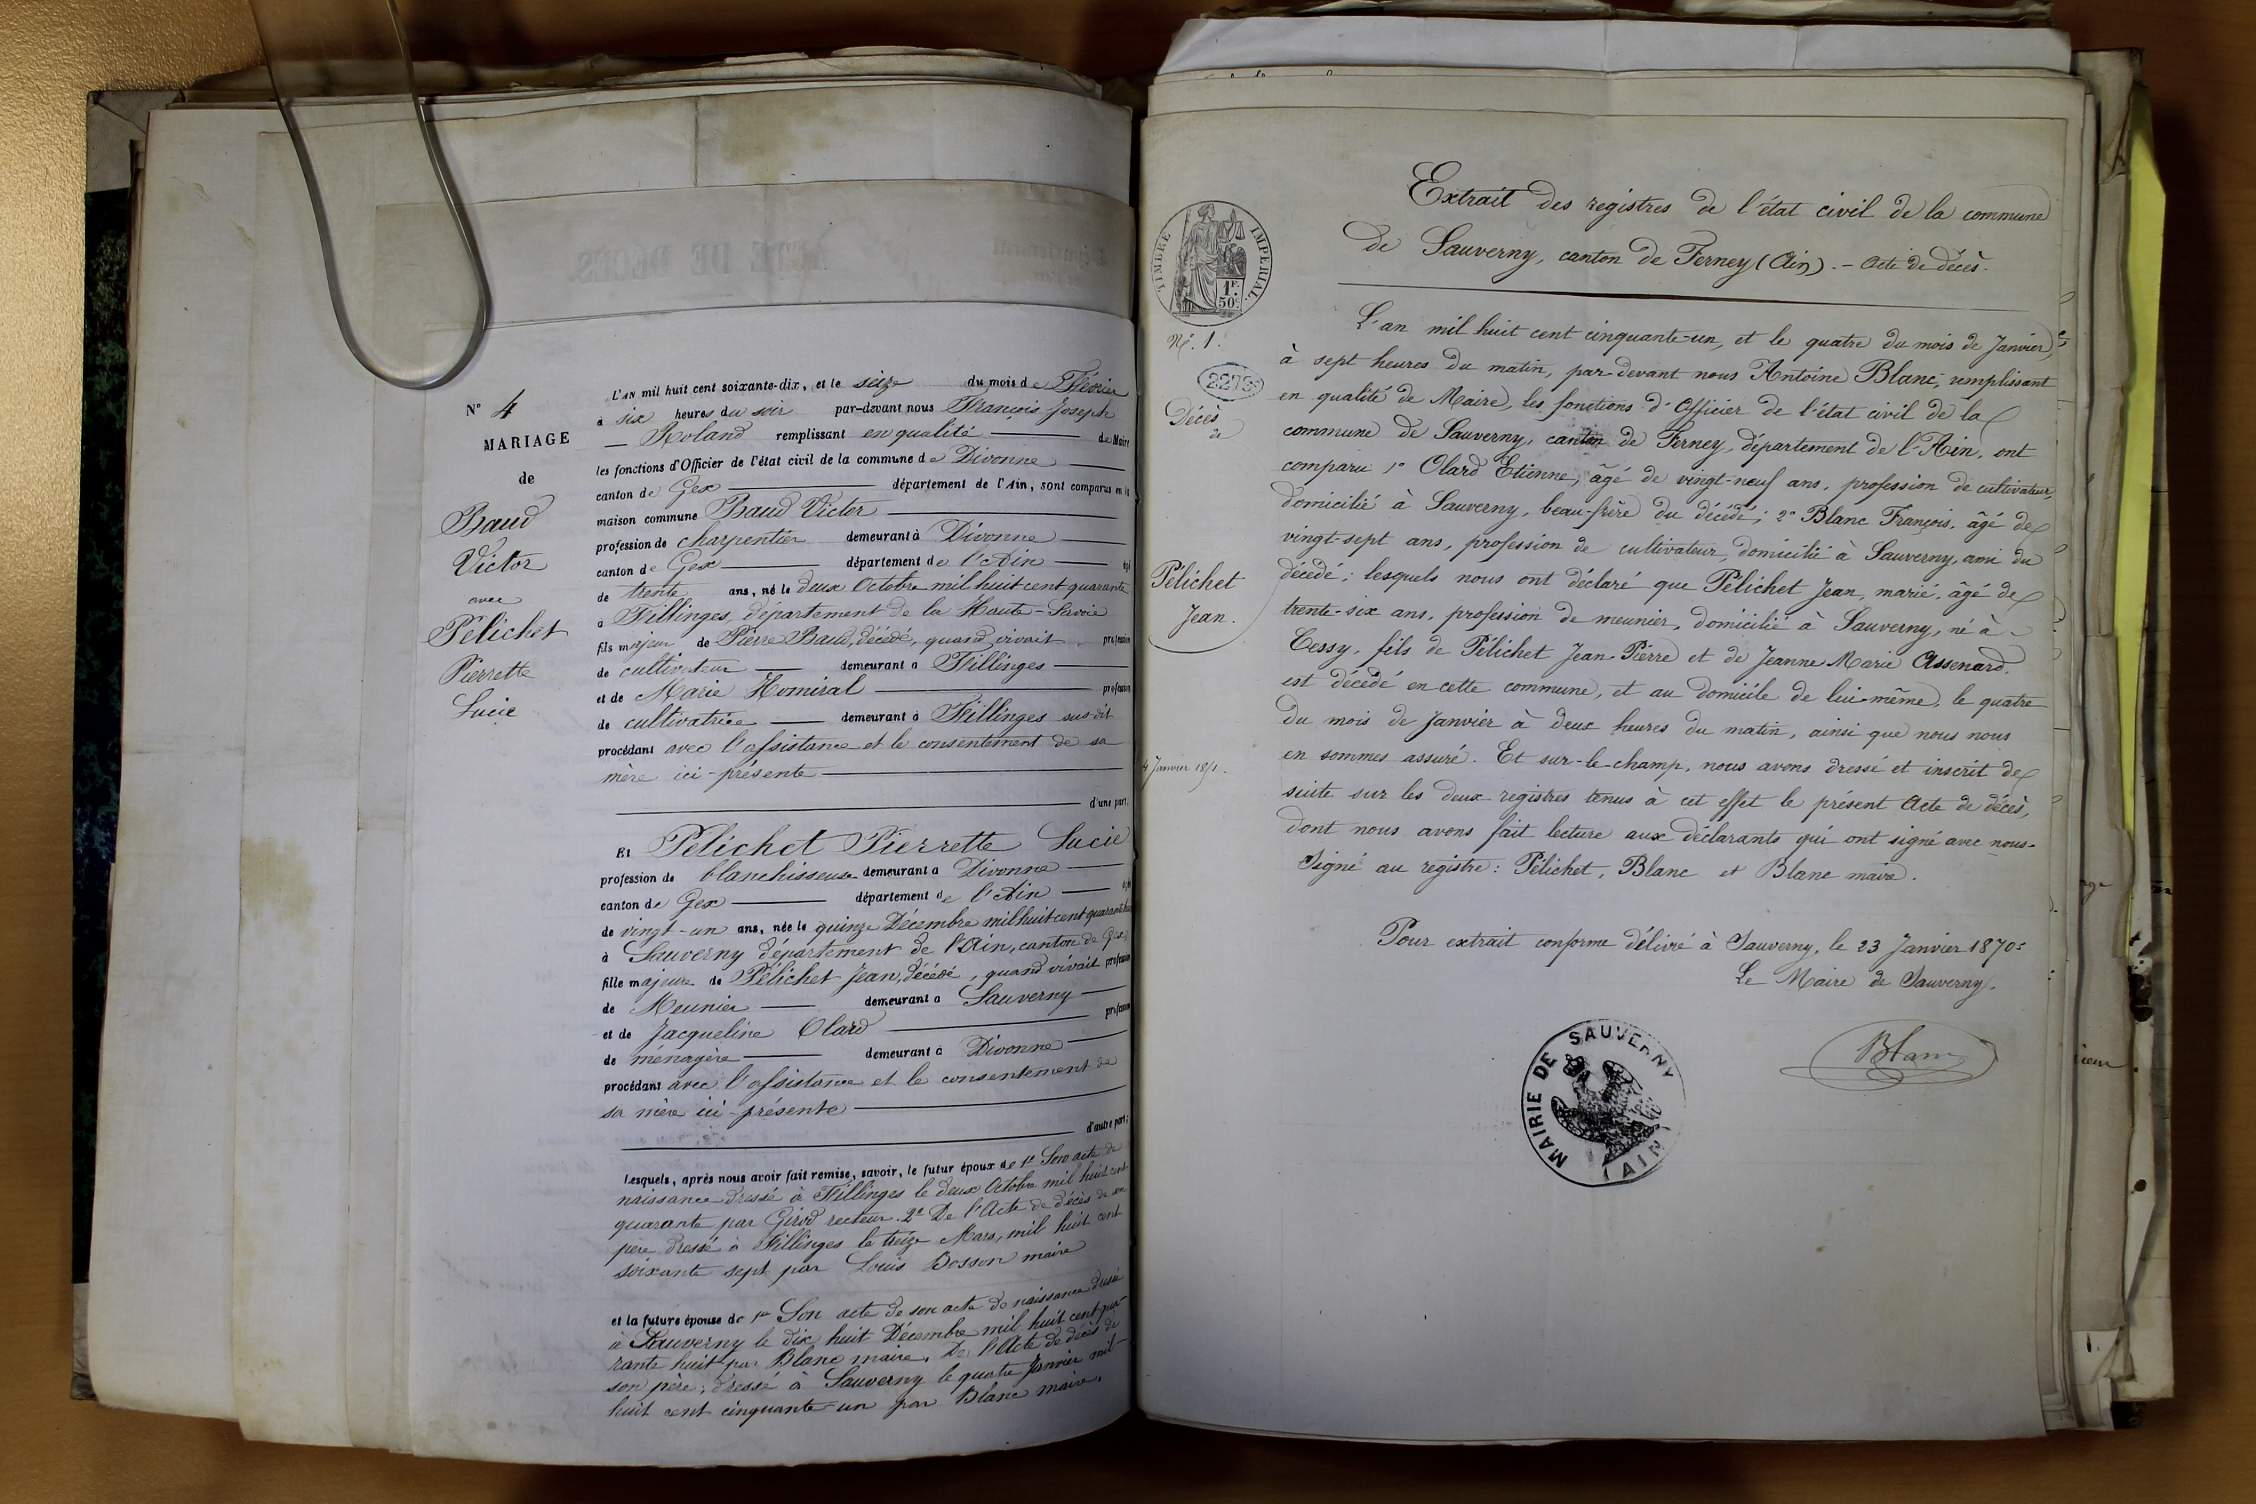 N° 4
MARIAGE
de
Baud
Victor
avec
Pélichet
Pierrette
Lucie
L'AN mil huit cent soixante-dix, et le seize du mois de Février
à six heures du soir par-devant nous François Joseph
Roland remplissant en qualité de Maire
les fonctions d'Officier de l'état civil de la commune de Divonne
canton de Gex département de l'Ain, sont comparus en la
maison commune Baud Victor
profession de charpentier demeurant à Divonne
canton de Gex département de l'Ain âgé
de trente ans, né le deux Octobre mil huit cent quarante
à Fillinges, département de la Haute-Savoie
fils majeur de Pierre Baud, décédé, quand vivait profession
de cultivateur demeurant à Fillinges
et de Marie Homiral profession
de cultivatrice demeurant à Fillinges sus-dit
procédant avec l'assistance et le consentement de sa
mère ici-présente
d'une part,
Et Pélichet Pierrette Lucie
profession de blanchisseuse demeurant à Divonne
canton de Gex département de l'Ain âgée
de vingt-un ans, née le quinze Décembre mil huit cent quarante huit
à Sauverny département de l'Ain, canton de Gex
fille majeure de Pélichet Jean, décédé, quand vivait profession
de Meunier demeurant à Sauverny
et de Jacqueline Olard profession
de ménagère demeurant à Divonne
procédant avec l'assistance et le consentement de
sa mère ici-présente
d'autre part;
Lesquels, après nous avoir fait remise, savoir, le futur époux de 1° Son acte de
naissance dressé à Fillinges le deux Octobre mil huit cent
quarante par Girod recteur. 2° De l'Acte de décès de son
père dressé à Fillinges le treize Mars, mil huit cent
soixante sept par Louis Bosson maire
et la future épouse de 1° Son acte de son acte de naissance dressé
à Sauverny le dix huit Décembre mil huit cent qua-
rante huit par Blanc maire. De l'Acte de décès de
son père, dressé à Sauverny le quatre Janvier mil
huit cent cinquante-un par Blanc maire.
TIMBRE IMPERIAL
1F.
50c
N°. 1.
2279
Décès
de
Pélichet
Jean.
4 Janvier 1851.
Extrait des registres de l'état civil de la commune
de Sauverny, canton de Ferney (Ain). - Acte de décès.
L'an mil huit cent cinquante-un, et le quatre du mois de Janvier,
à sept heures du matin, par-devant nous Antoine Blanc, remplissant
en qualité de Maire, les fonctions d'Officier de l'état civil de la
commune de Sauverny, canton de Ferney, département de l'Ain, ont
comparu 1° Olard Etienne, âgé de vingt-neuf ans, profession de cultivateur,
domicilié à Sauverny, beau-frère du décédé; 2° Blanc François, âgé de
vingt-sept ans, profession de cultivateur, domicilié à Sauverny, ami du
décédé; lesquels nous ont déclaré que Pélichet Jean, marié, âgé de
trente-six ans, profession de meunier, domicilié à Sauverny, né à
Cessy, fils de Pélichet Jean Pierre et de Jeanne Marie Assenard,
est décédé en cette commune, et au domicile de lui-même, le quatre
du mois de Janvier à deux heures du matin, ainsi que nous nous
en sommes assuré. Et sur-le-champ, nous avons dressé et inscrit de
suite sur les deux registres tenus à cet effet le présent Acte de décès,
dont nous avons fait lecture aux déclarants qui ont signé avec nous.
Signé au registre: Pélichet, Blanc et Blanc maire.
Pour extrait conforme délivré à Sauverny, le 23 Janvier 1870.
Le Maire de Sauverny.
Blanc
MAIRIE DE SAUVERNY
(AIN)